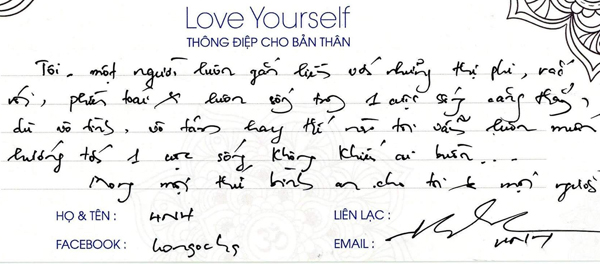 Love Yourself
THÔNG ĐIỆP CHO BẢN THÂN
Tôi, một người luôn gắn liền với những thị phi, rắc
rối, phiền toái & luôn sống trong 1 cuộc sống căng thẳng,
dù vô tình, vô tâm hay thế nào tôi vẫn luôn muốn
hướng tới 1 cuộc sống không khiến ai buồn...
Mong mọi thứ bình an cho tôi & mọi người
HỌ & TÊN : HNH LIÊN LẠC :
FACEBOOK : EMAIL :